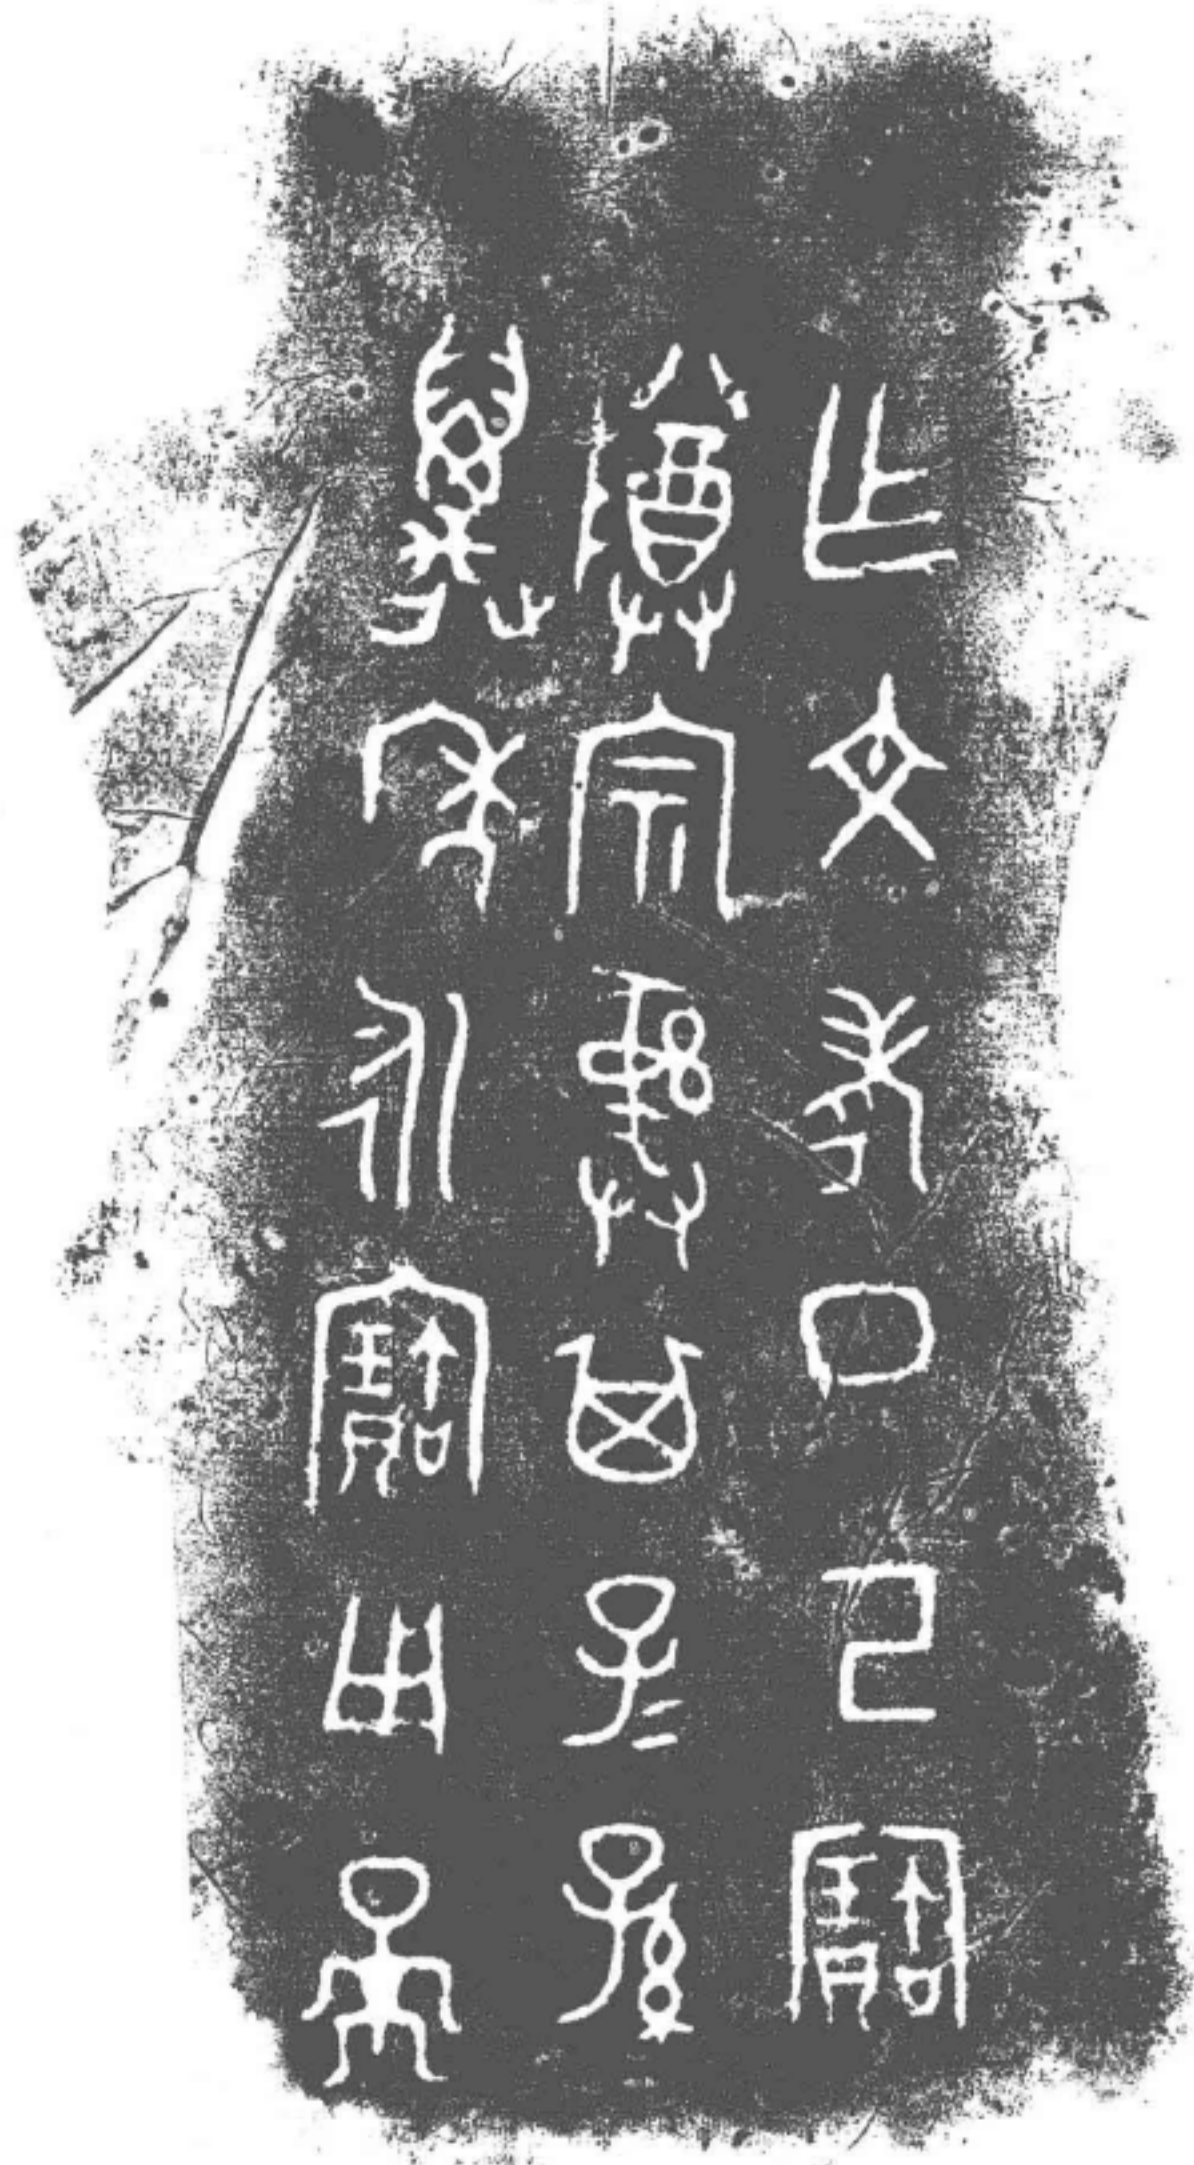 乍文考日己寶
尊宗彝其子子孫
萬年永寶用天